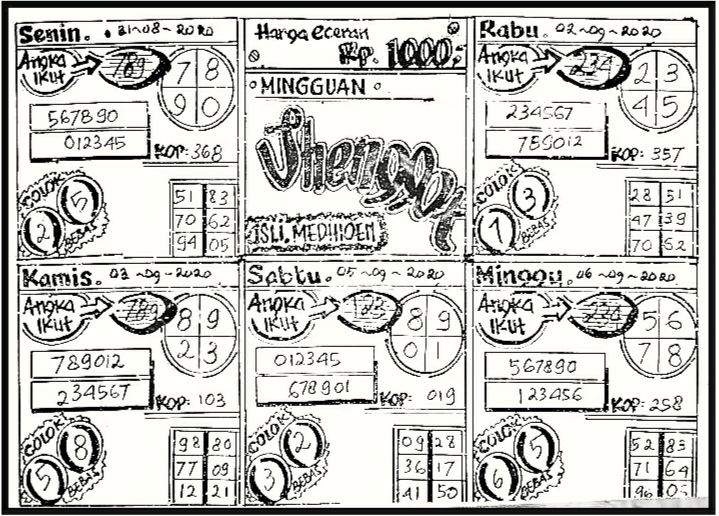 Senin. 31-08-2020
Angka Ikut 789
7 8
9 0
567890
012345
KOP: 368
COLOK BEBAS
5
2
51 83
70 62
94 05
Harga eceran
Rp. 1000,-
MINGGUAN
JSLI. MEDIIIOEN
Rabu. 02-09-2020
Angka Ikut 234
2 3
4 5
234567
789012
KOP: 357
COLOK BEBAS
3
1
28 51
47 39
70 62
Kamis. 03-09-2020
Angka Ikut 789
8 9
2 3
789012
234567
KOP: 103
COLOK BEBAS
8
5
98 80
77 09
12 21
Sabtu. 05-09-2020
Angka Ikut 123
8 9
0 1
012345
678901
KOP: 019
COLOK BEBAS
2
3
09 28
36 17
41 50
Minggu. 06-09-2020
Angka Ikut
5 6
7 8
567890
123456
KOP: 258
COLOK BEBAS
5
6
52 83
71 64
96 05